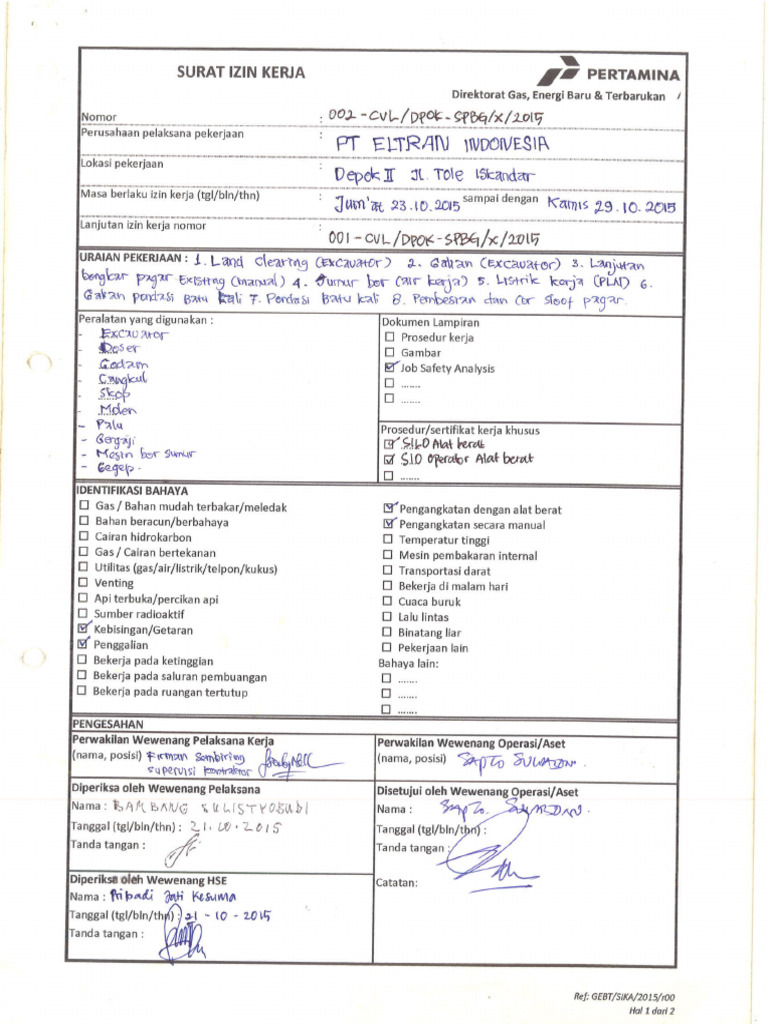 SURAT IZIN KERJA
PERTAMINA
Direktorat Gas, Energi Baru & Terbarukan
Nomor : 002-CVL/DPOK-SPBG/X/2015
Perusahaan pelaksana pekerjaan : PT ELTRAN INDONESIA
Lokasi pekerjaan : Depok II Jl. Tole Iskandar
Masa berlaku izin kerja (tgl/bln/thn) : Jum'at 23.10.2015 sampai dengan Kamis 29.10.2015
Lanjutan izin kerja nomor : 001-CVL/DPOK-SPBG/X/2015
URAIAN PEKERJAAN : 1. Land Clearing (Excavator) 2. Galian (Excavator) 3. Lanjutan
bongkar pagar Existing (manual) 4. Sumur bor (air kerja) 5. Listrik kerja (PLN) 6.
Galian Pondasi Batu Kali 7. Pondasi Batu kali 8. Pembesian dan Cor sloof pagar.
Peralatan yang digunakan :
- Excavator
- Doser
- Godam
- Cangkul
- Skop
- Molen
- Palu
- Gergaji
- Mesin bor sumur
- Gegep.
Dokumen Lampiran
Prosedur kerja
Gambar
Job Safety Analysis
.......
.......
Prosedur/sertifikat kerja khusus
SILO Alat berat
SIO Operator Alat berat
.......
IDENTIFIKASI BAHAYA
Gas / Bahan mudah terbakar/meledak
Bahan beracun/berbahaya
Cairan hidrokarbon
Gas / Cairan bertekanan
Utilitas (gas/air/listrik/telpon/kukus)
Venting
Api terbuka/percikan api
Sumber radioaktif
Kebisingan/Getaran
Penggalian
Bekerja pada ketinggian
Bekerja pada saluran pembuangan
Bekerja pada ruangan tertutup
Pengangkatan dengan alat berat
Pengangkatan secara manual
Temperatur tinggi
Mesin pembakaran internal
Transportasi darat
Bekerja di malam hari
Cuaca buruk
Lalu lintas
Binatang liar
Pekerjaan lain
Bahaya lain:
.......
.......
.......
PENGESAHAN
Perwakilan Wewenang Pelaksana Kerja
(nama, posisi) Firman Sembiring
Supervisi kontraktor
Diperiksa oleh Wewenang Pelaksana
Nama : BAMBANG SULISTYOBUDI
Tanggal (tgl/bln/thn) : 21.10.2015
Tanda tangan :
Diperiksa oleh Wewenang HSE
Nama : Pribadi Jati Kesuma
Tanggal (tgl/bln/thn) : 21-10-2015
Tanda tangan :
Perwakilan Wewenang Operasi/Aset
(nama, posisi) SAPTO
Disetujui oleh Wewenang Operasi/Aset
Nama : SAPTO
Tanggal (tgl/bln/thn) :
Tanda tangan :
Catatan:
Ref: GEBT/SIKA/2015/r00
Hal 1 dari 2